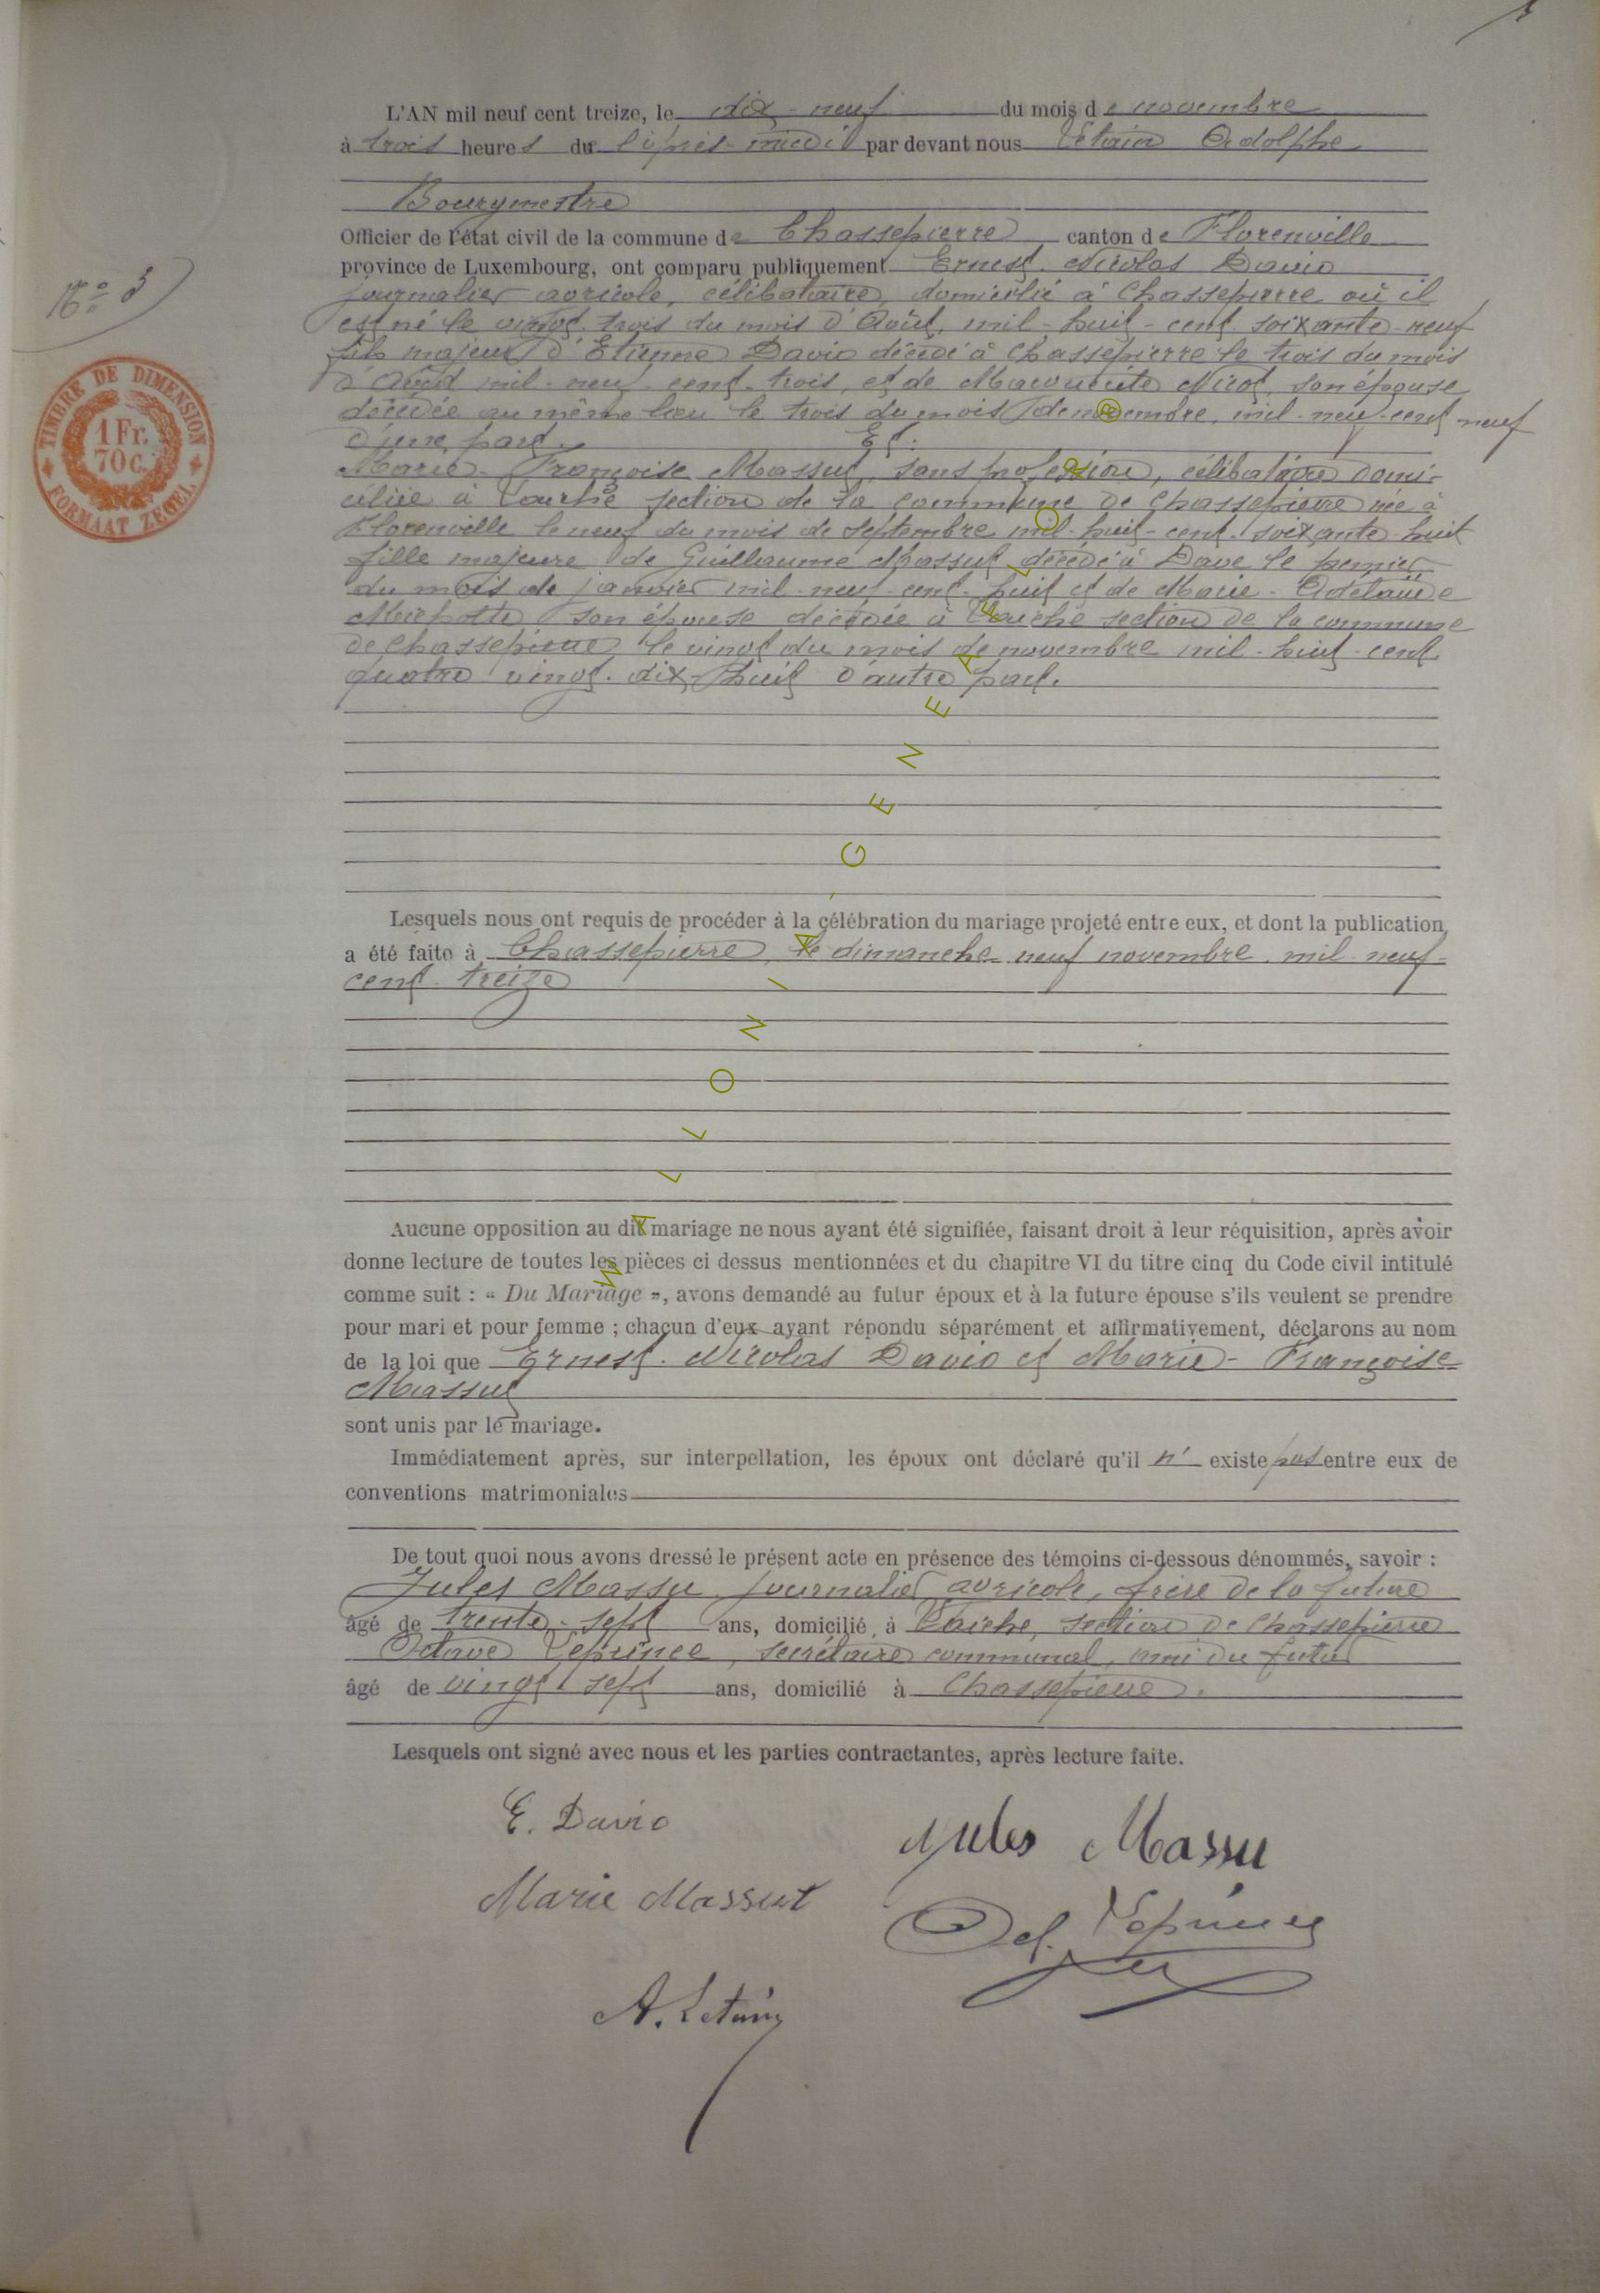 L'AN mil neuf cent treize, le dix-neuf du mois de novembre
à trois heures de l'après-midi par devant nous Létain Adolphe
Bourgmestre
Officier de l'état civil de la commune de Chassepierre canton de Florenville
province de Luxembourg, ont comparu publiquement Ernest-Nicolas David
N° 3
journalier agricole, célibataire, domicilié à Chassepierre où il
est né le vingt-trois du mois d'Août, mil-huit-cent-soixante-neuf
fils majeur d'Etienne David décédé à Chassepierre le trois du mois
d'Août mil-neuf-cent-trois, et de Marguerite Nicot, son épouse
décédée au même lieu le trois du mois de novembre, mil-neuf-cent-neuf
d'une part. Et:
Marie-Françoise Massut, sans profession, célibataire domi-
ciliée à Laiche section de la commune de Chassepierre née à
Florenville le neuf du mois de septembre mil-huit-cent-soixante-huit
fille majeure de Guillaume Massut décédé à Dave le premier
du mois de janvier mil-neuf-cent-huit et de Marie-Adélaïde
son épouse décédée à Laiche section de la commune
de Chassepierre le vingt du mois de novembre mil-huit-cent
quatre vingt-dix-huit d'autre part.
TIMBRE DE DIMENSION
1 Fr.
70 c.
FORMAAT ZEGEL
Lesquels nous ont requis de procéder à la célébration du mariage projeté entre eux, et dont la publication
a été faite à Chassepierre, le dimanche neuf novembre mil-neuf-
cent-treize
Aucune opposition au dit mariage ne nous ayant été signifiée, faisant droit à leur réquisition, après avoir
donne lecture de toutes les pièces ci dessus mentionnées et du chapitre VI du titre cinq du Code civil intitulé
comme suit : « Du Mariage », avons demandé au futur époux et à la future épouse s'ils veulent se prendre
pour mari et pour femme ; chacun d'eux ayant répondu séparément et affirmativement, déclarons au nom
de la loi que Ernest-Nicolas David et Marie-Françoise
Massut
sont unis par le mariage.
Immédiatement après, sur interpellation, les époux ont déclaré qu'il n' existe pas entre eux de
conventions matrimoniales
De tout quoi nous avons dressé le présent acte en présence des témoins ci-dessous dénommés, savoir :
Jules Massu, journalier agricole, frère de la future
âgé de trente-sept ans, domicilié à Laiche, section de Chassepierre
Octave Leprince, secrétaire communal, ami du futur
âgé de vingt-sept ans, domicilié à Chassepierre.
Lesquels ont signé avec nous et les parties contractantes, après lecture faite.
E. David
Jules Massu
Marie Massut
Oct. Leprince
A. Létain
WALLONIA-GENEALOR®